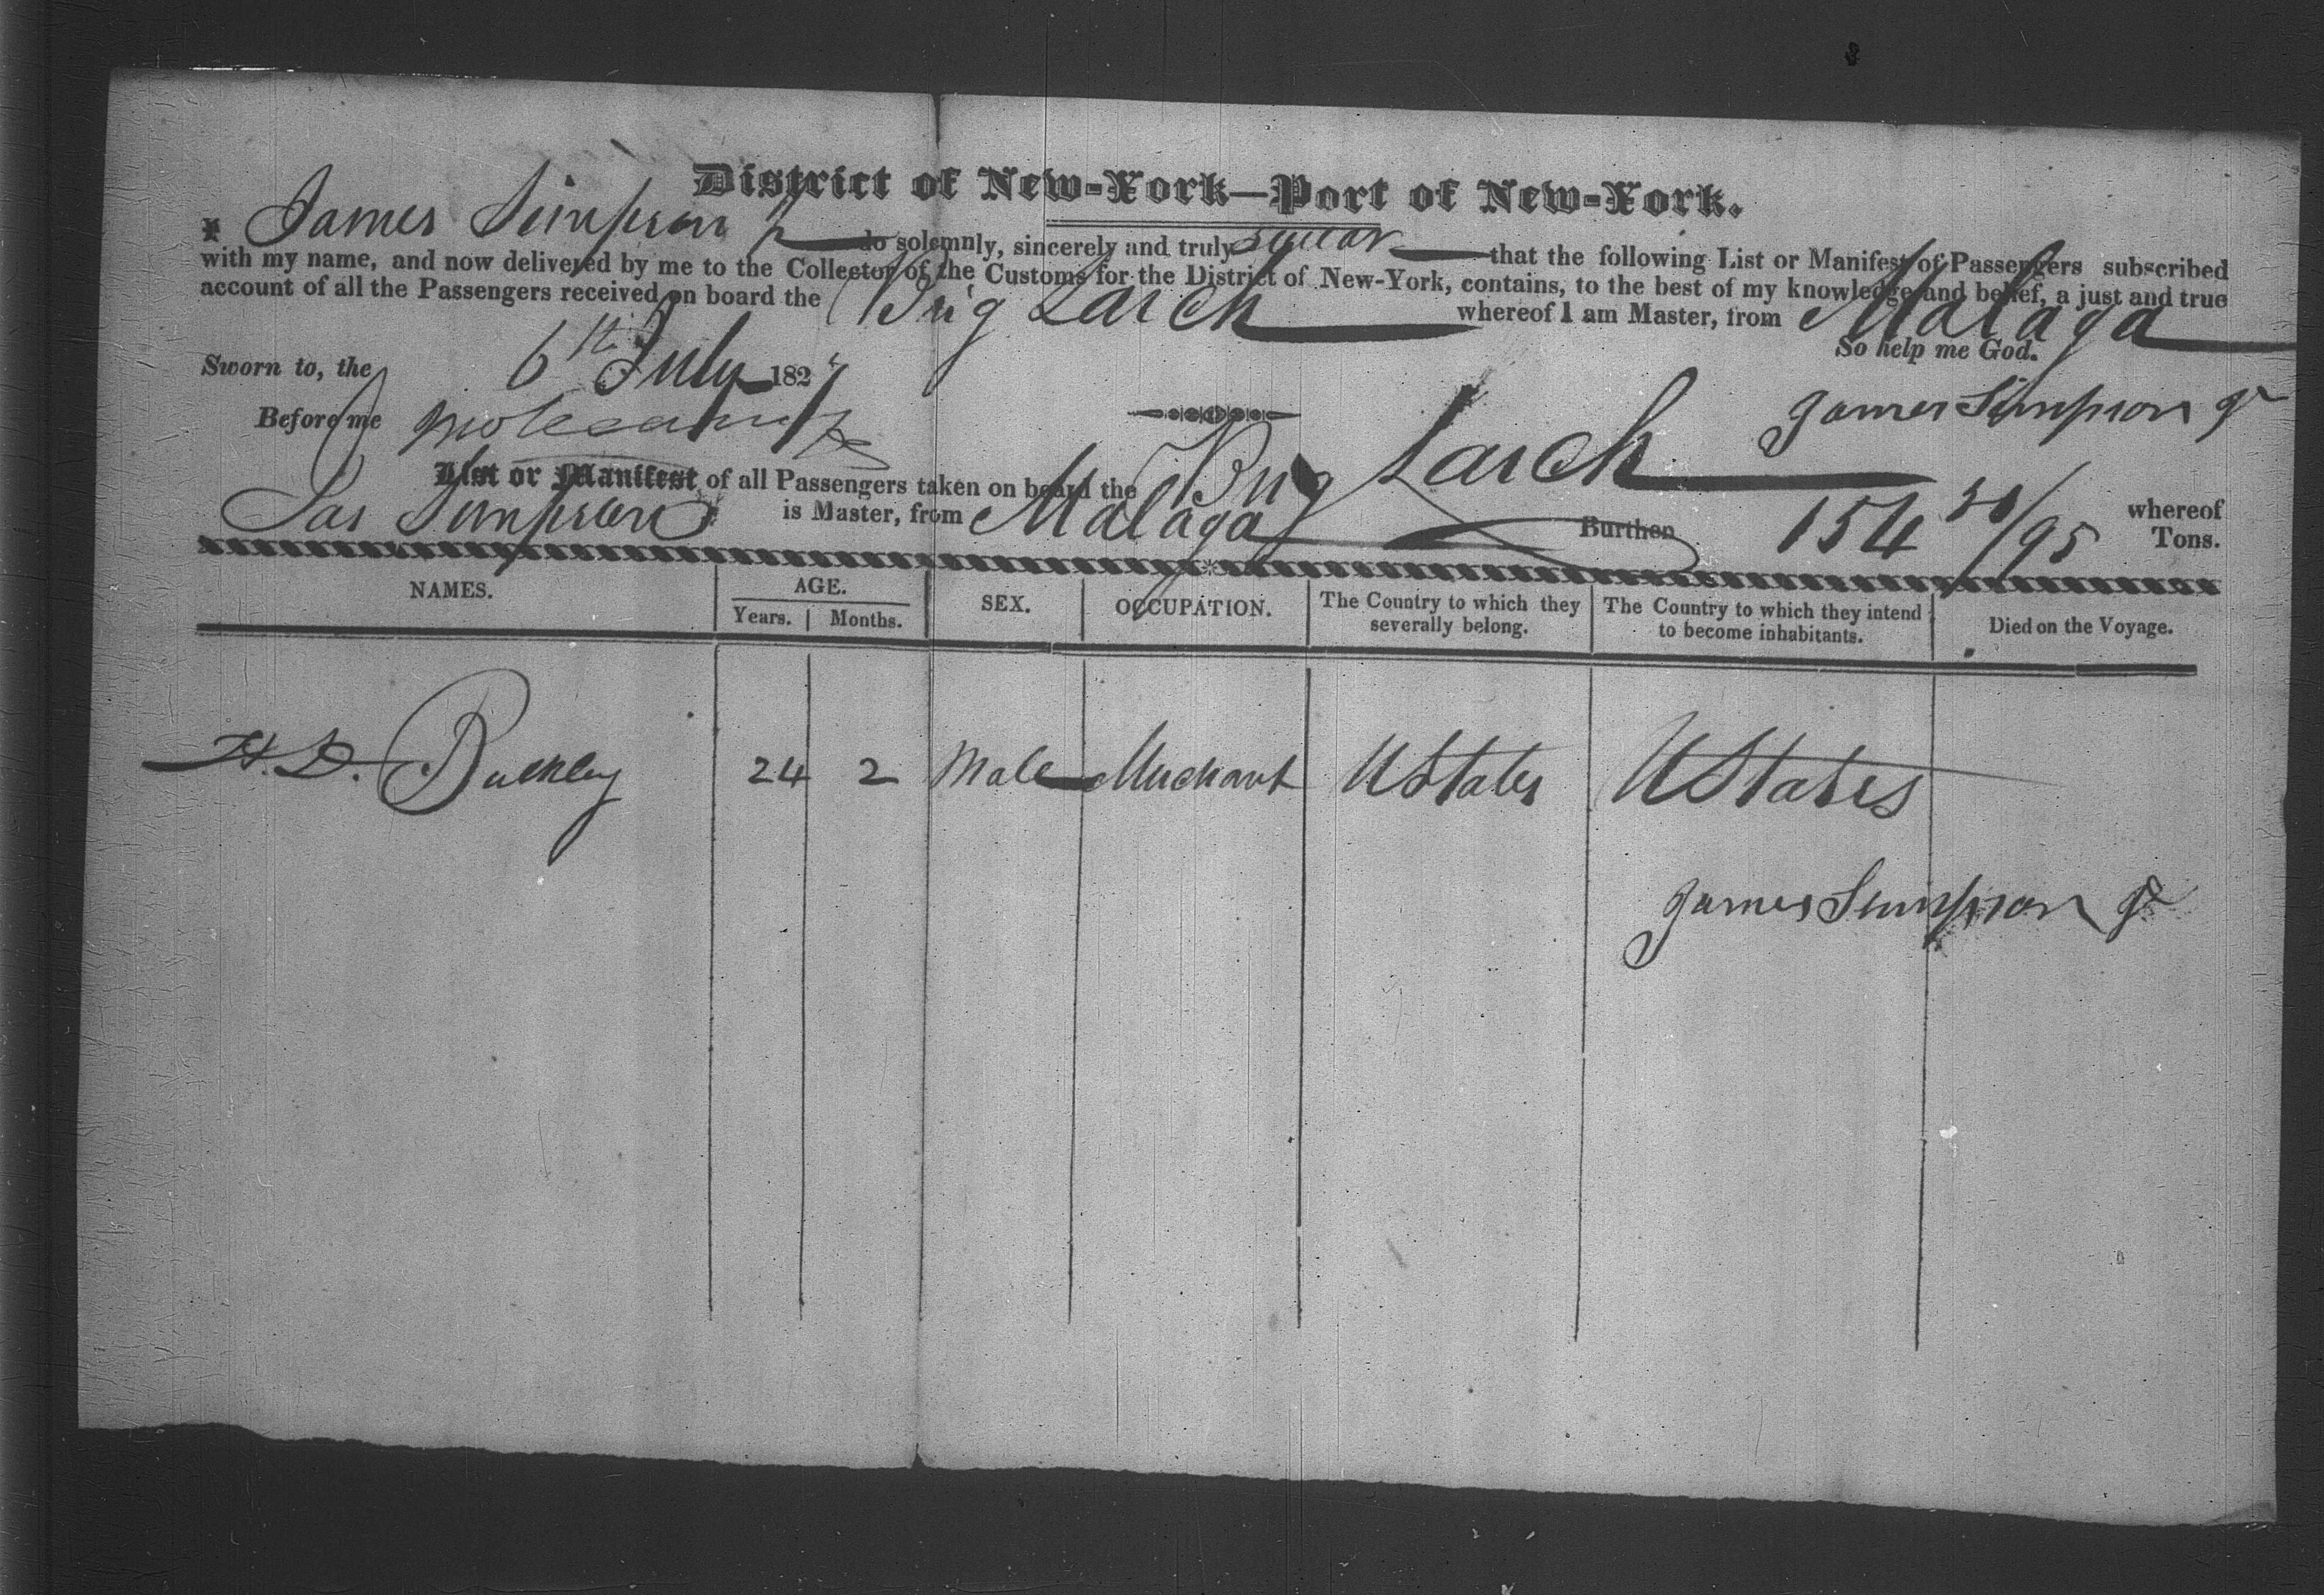 District of New-York—Port of New-York.
I James Simpson Jr do solemnly, sincerely and truly swear that the following List or Manifest of Passengers subscribed
with my name, and now delivered by me to the Collector of the Customs for the District of New-York, contains, to the best of my knowledge and belief, a just and true
account of all the Passengers received on board the Brig Larch whereof I am Master, from Malaga
So help me God.
Sworn to, the 6th July 1827
James Simpson Jr
Before me
List or Manifest of all Passengers taken on board the Brig Larch whereof
Jas Simpson is Master, from Malaga Burthen 154 /95 Tons.
NAMES. AGE. SEX. OCCUPATION. The Country to which they severally belong. The Country to which they intend to become inhabitants. Died on the Voyage.
Years. Months.
H. D. Bulkley 24 2 Male Merchant UStates UStates
James Simpson Jr